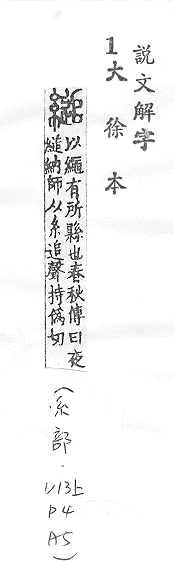 説文解字
1大徐本
縋
以繩有所縣也春秋傳曰夜
縋納師从糸追聲持偽切
(糸部.
V13上
P4
A5)